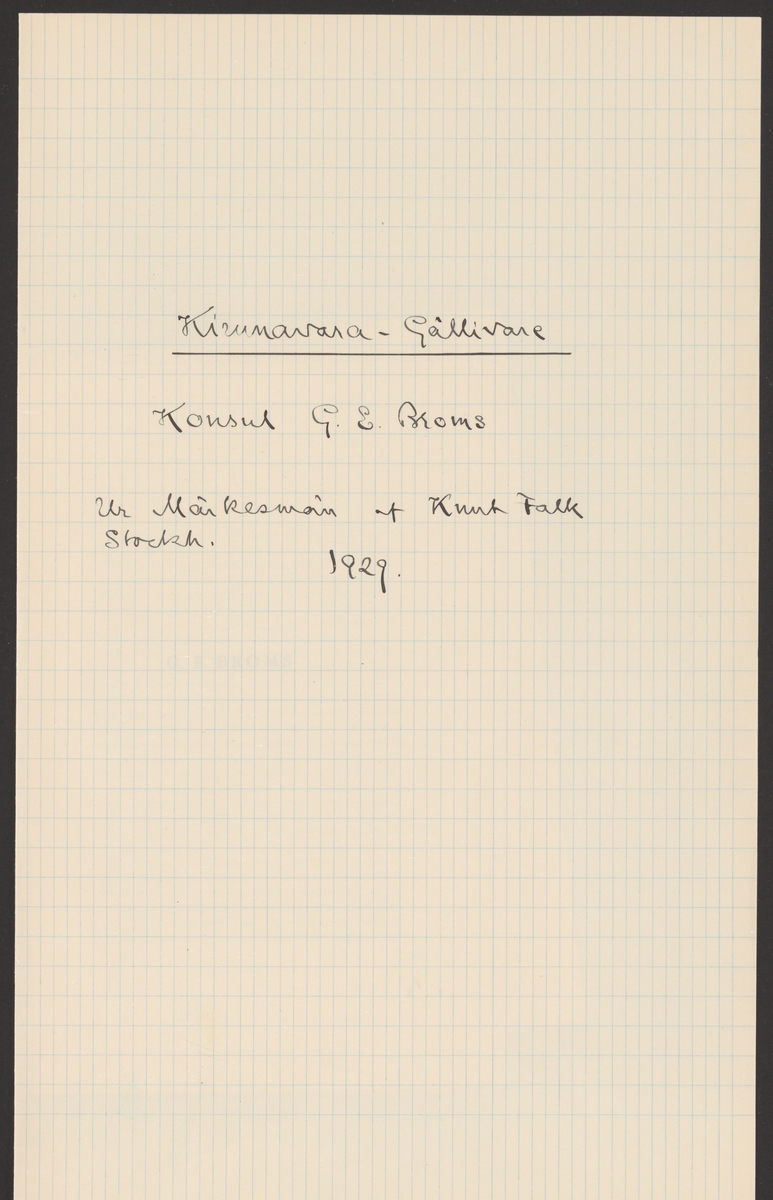 Kirunavara - Gällivare
Konsul G. E. Broms
Ur Märkesmän af Knut Falk
Stockh.
1929.